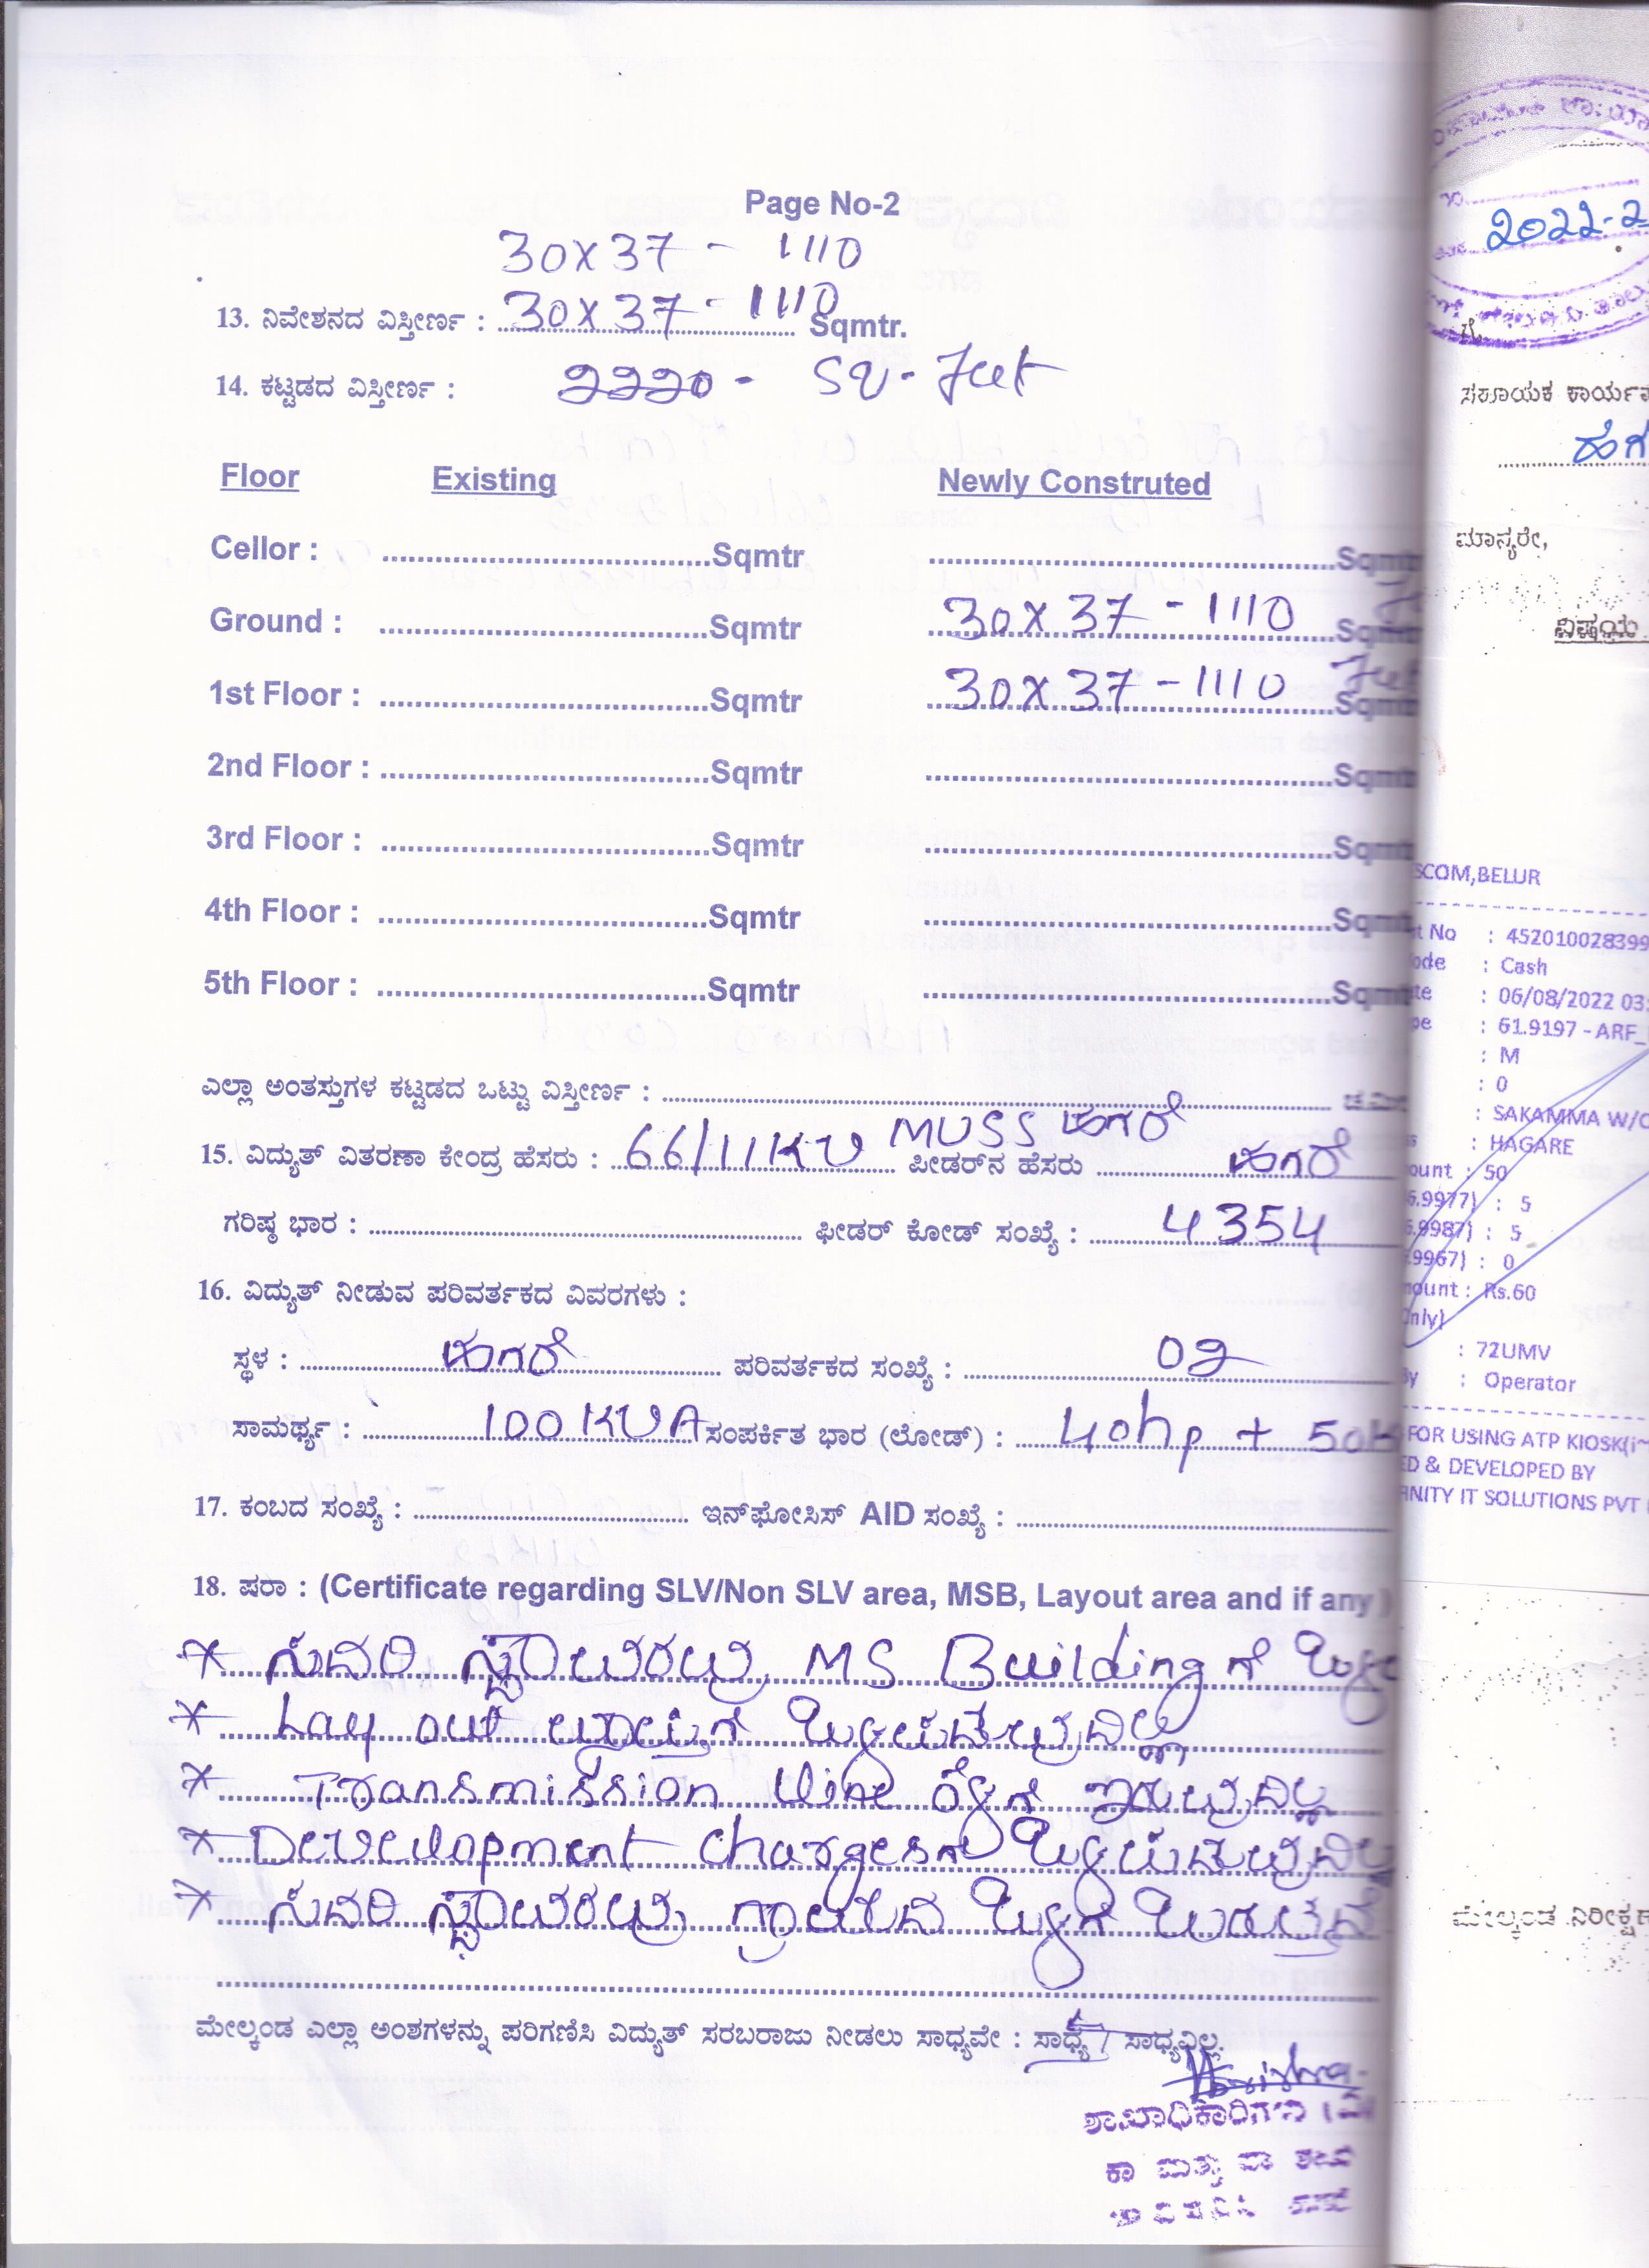 Page No-2
30x37 - 1110
13. ನಿವೇಶನದ ವಿಸ್ತೀರ್ಣ : 30x37 - 1110 Sqmtr.
14. ಕಟ್ಟಡದ ವಿಸ್ತೀರ್ಣ : 2220 - Sq - Feet
Floor Existing Newly Construted
Cellor : Sqmtr Sqmtr
Ground : Sqmtr 30x37 - 1110 Sqmtr
1st Floor : Sqmtr 30x37 - 1110 Feet Sqmtr
2nd Floor : Sqmtr Sqmtr
3rd Floor : Sqmtr Sqmtr
4th Floor : Sqmtr Sqmtr
5th Floor : Sqmtr Sqmtr
ಎಲ್ಲಾ ಅಂತಸ್ತುಗಳ ಕಟ್ಟಡದ ಒಟ್ಟು ವಿಸ್ತೀರ್ಣ :
15. ವಿದ್ಯುತ್ ವಿತರಣಾ ಕೇಂದ್ರ ಹೆಸರು : 66/11KV MUSS ಹಗರೆ ಪೀಡರ್‌ನ ಹೆಸರು ಹಗರೆ
ಗರಿಷ್ಠ ಭಾರ : ಫೀಡರ್ ಕೋಡ್ ಸಂಖ್ಯೆ : 4354
16. ವಿದ್ಯುತ್ ನೀಡುವ ಪರಿವರ್ತಕದ ವಿವರಗಳು :
ಸ್ಥಳ : ಹಗರೆ ಪರಿವರ್ತಕದ ಸಂಖ್ಯೆ : 02
ಸಾಮರ್ಥ್ಯ : 100 KVA ಸಂಪರ್ಕಿತ ಭಾರ (ಲೋಡ್) : 40hp + 50K
17. ಕಂಬದ ಸಂಖ್ಯೆ : ಇನ್‌ಫೋಸಿಸ್ AID ಸಂಖ್ಯೆ :
18. ಷರಾ : (Certificate regarding SLV/Non SLV area, MSB, Layout area and if any )
* ಸದರಿ ಸ್ಥಾವರವು MS Building ಗೆ
* Lay out ವ್ಯಾಪ್ತಿಗೆ ಒಳಪಡುವುದಿಲ್ಲ
* Transmission line ಕೆಳಗೆ ಇರುವುದಿಲ್ಲ
* Development charges ಗೆ ಒಳಪಡುವುದಿಲ್ಲ
* ಸದರಿ ಸ್ಥಾವರವು ಗ್ರಾಮದ ಒಳಗೆ ಬರುತ್ತದೆ
ಮೇಲ್ಕಂಡ ಎಲ್ಲಾ ಅಂಶಗಳನ್ನು ಪರಿಗಣಿಸಿ ವಿದ್ಯುತ್ ಸರಬರಾಜು ನೀಡಲು ಸಾಧ್ಯವೇ : ಸಾಧ್ಯ / ಸಾಧ್ಯವಿಲ್ಲ.
ಶಾಖಾಧಿಕಾರಿಗಳು
2022-2
ಸಹಾಯಕ ಕಾರ್ಯಪಾ
ಮಾನ್ಯರೇ,
ವಿಷಯ
SCOM,BELUR
t No : 452010028399
ode : Cash
te : 06/08/2022 03:
pe : 61.9197 - ARF_
: M
: 0
: SAKAMMA W/O
s : HAGARE
ount : 50
6.9977) : 5
6.9987) : 5
.9967) : 0
mount : Rs.60
Only)
: 72UMV
By : Operator
FOR USING ATP KIOSK(i~
ED & DEVELOPED BY
RNITY IT SOLUTIONS PVT
ಮೇಲ್ಕಂಡ ನಿರೀಕ್ಷಣ